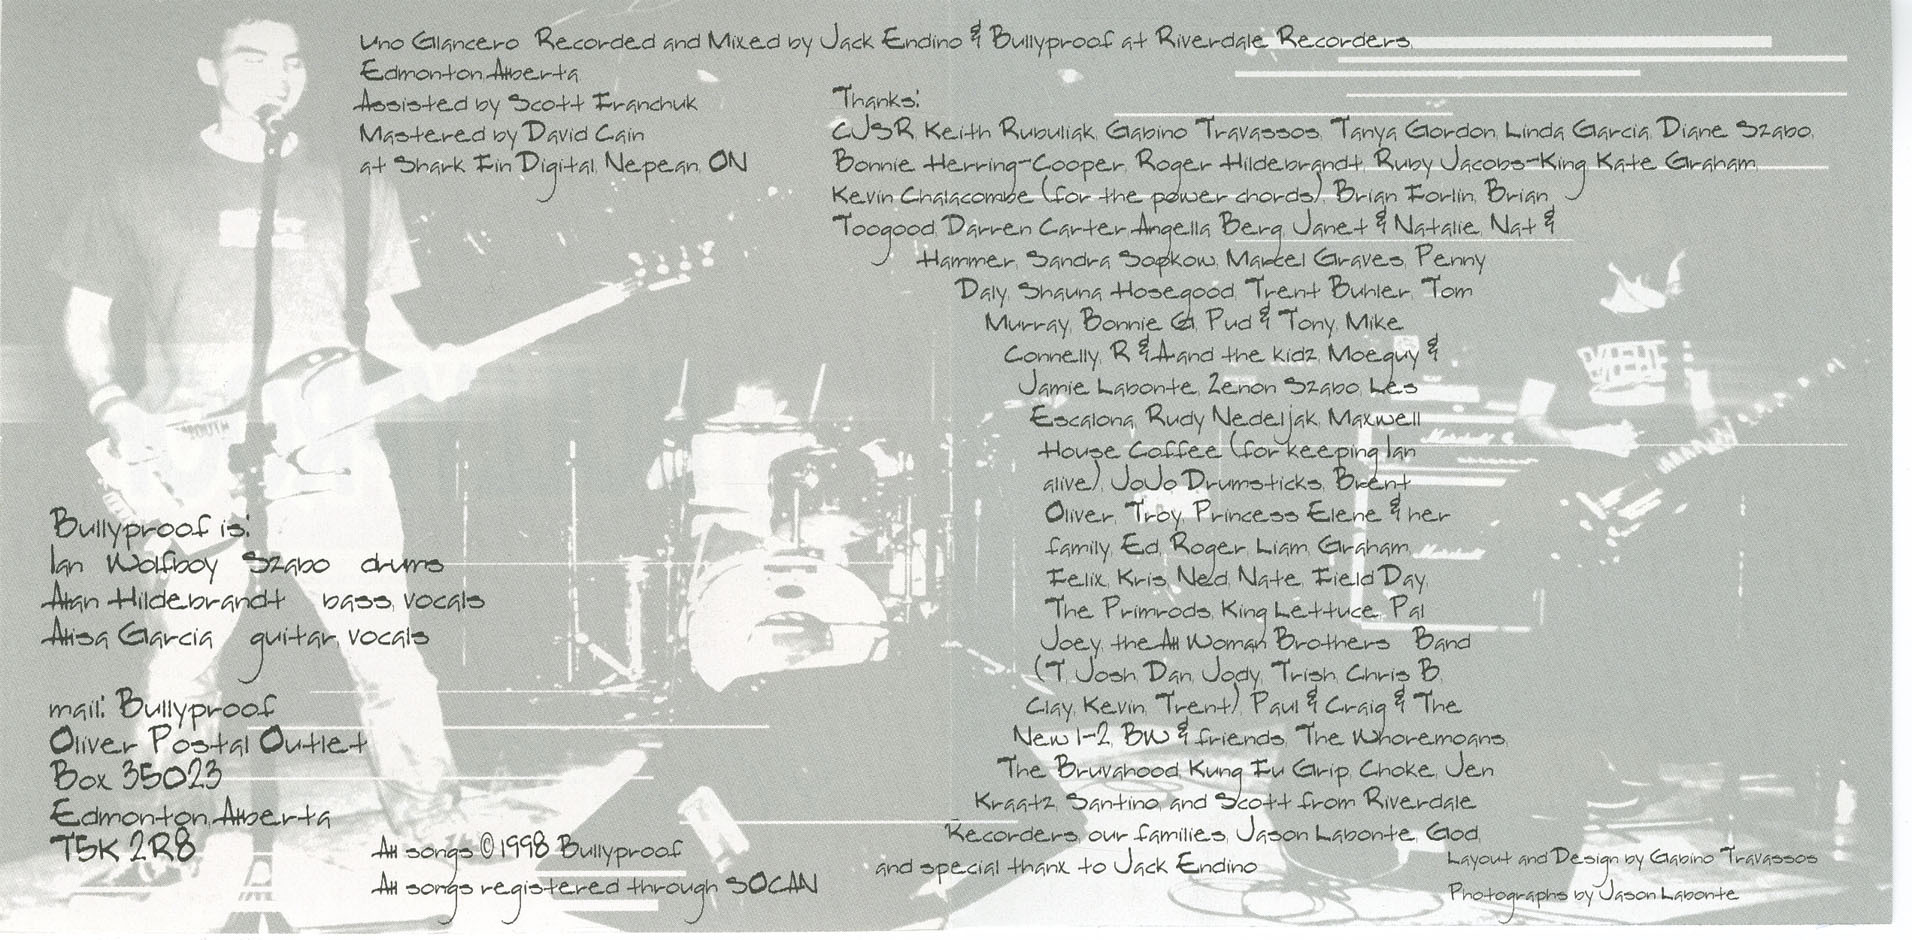 Uno Glancero Recorded and Mixed by Jack Endino & Bullyproof at Riverdale Recorders,
Edmonton, Alberta
Assisted by Scott Franchuk
Mastered by David Cain
at Shark Fin Digital, Nepean, ON
Thanks:
CJSR, Keith Rubuliak, Gabino Travassos, Tanya Gordon, Linda Garcia, Diane Szabo,
Bonnie Herring-Cooper, Roger Hildebrandt, Ruby Jacobs-King, Kate Graham,
Kevin Chalacombe (for the power chords), Brian Forlin, Brian
Toogood, Darren Carter, Angella Berg, Janet & Natalie, Nat &
Hammer, Sandra Sopkow, Marcel Graves, Penny
Daly, Shauna Hosegood, Trent Buhler, Tom
Murray, Bonnie G, Pud & Tony, Mike
Connelly, R & A and the kidz, Moeguy &
Jamie Labonte, Zenon Szabo, Les
Escalona, Rudy Nedeljak, Maxwell
House Coffee (for keeping Ian
alive), JoJo Drumsticks, Brent
Oliver, Troy, Princess Elene & her
family, Ed, Roger, Liam, Graham,
Felix, Kris, Ned, Nate, Field Day,
The Primrods, King Lettuce, Pal
Joey, the All Woman Brothers Band
(T, Josh, Dan, Jody, Trish, Chris B,
Clay, Kevin, Trent), Paul & Craig & The
New 1-2, BW & friends, The Whoremoans,
The Bruvahood, Kung Fu Grip, Choke, Jen
Kraatz, Santino, and Scott from Riverdale
Recorders, our families, Jason Labonte, God,
and special thanx to Jack Endino
Bullyproof is:
Ian Wolfboy Szabo drums
Alan Hildebrandt bass, vocals
Alisa Garcia guitar, vocals
mail: Bullyproof
Oliver Postal Outlet
Box 35023
Edmonton, Alberta
T5K 2R8
All songs ©1998 Bullyproof
All songs registered through SOCAN
Layout and Design by Gabino Travassos
Photographs by Jason Labonte
Marshall
Marshall